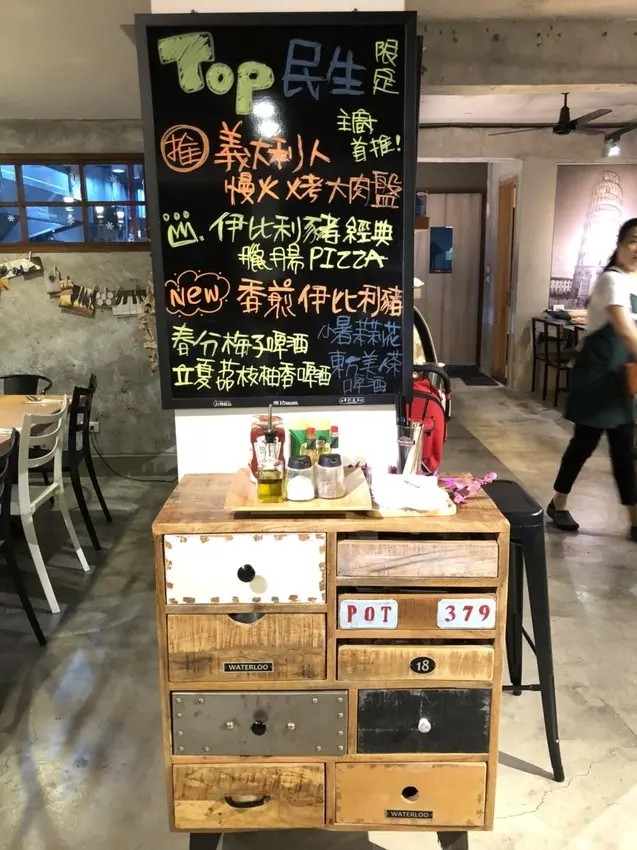 Top 民生 限定
主廚首推!
推 義大利人
慢火烤大肉盤
伊比利豬經典
臘腸PIZZA
NEW 香煎伊比利豬
春分梅子啤酒
立夏荔枝柚香啤酒
小暑茉莉花
東方美人茶
啤酒
POT 379
WATERLOO
18
WATERLOO